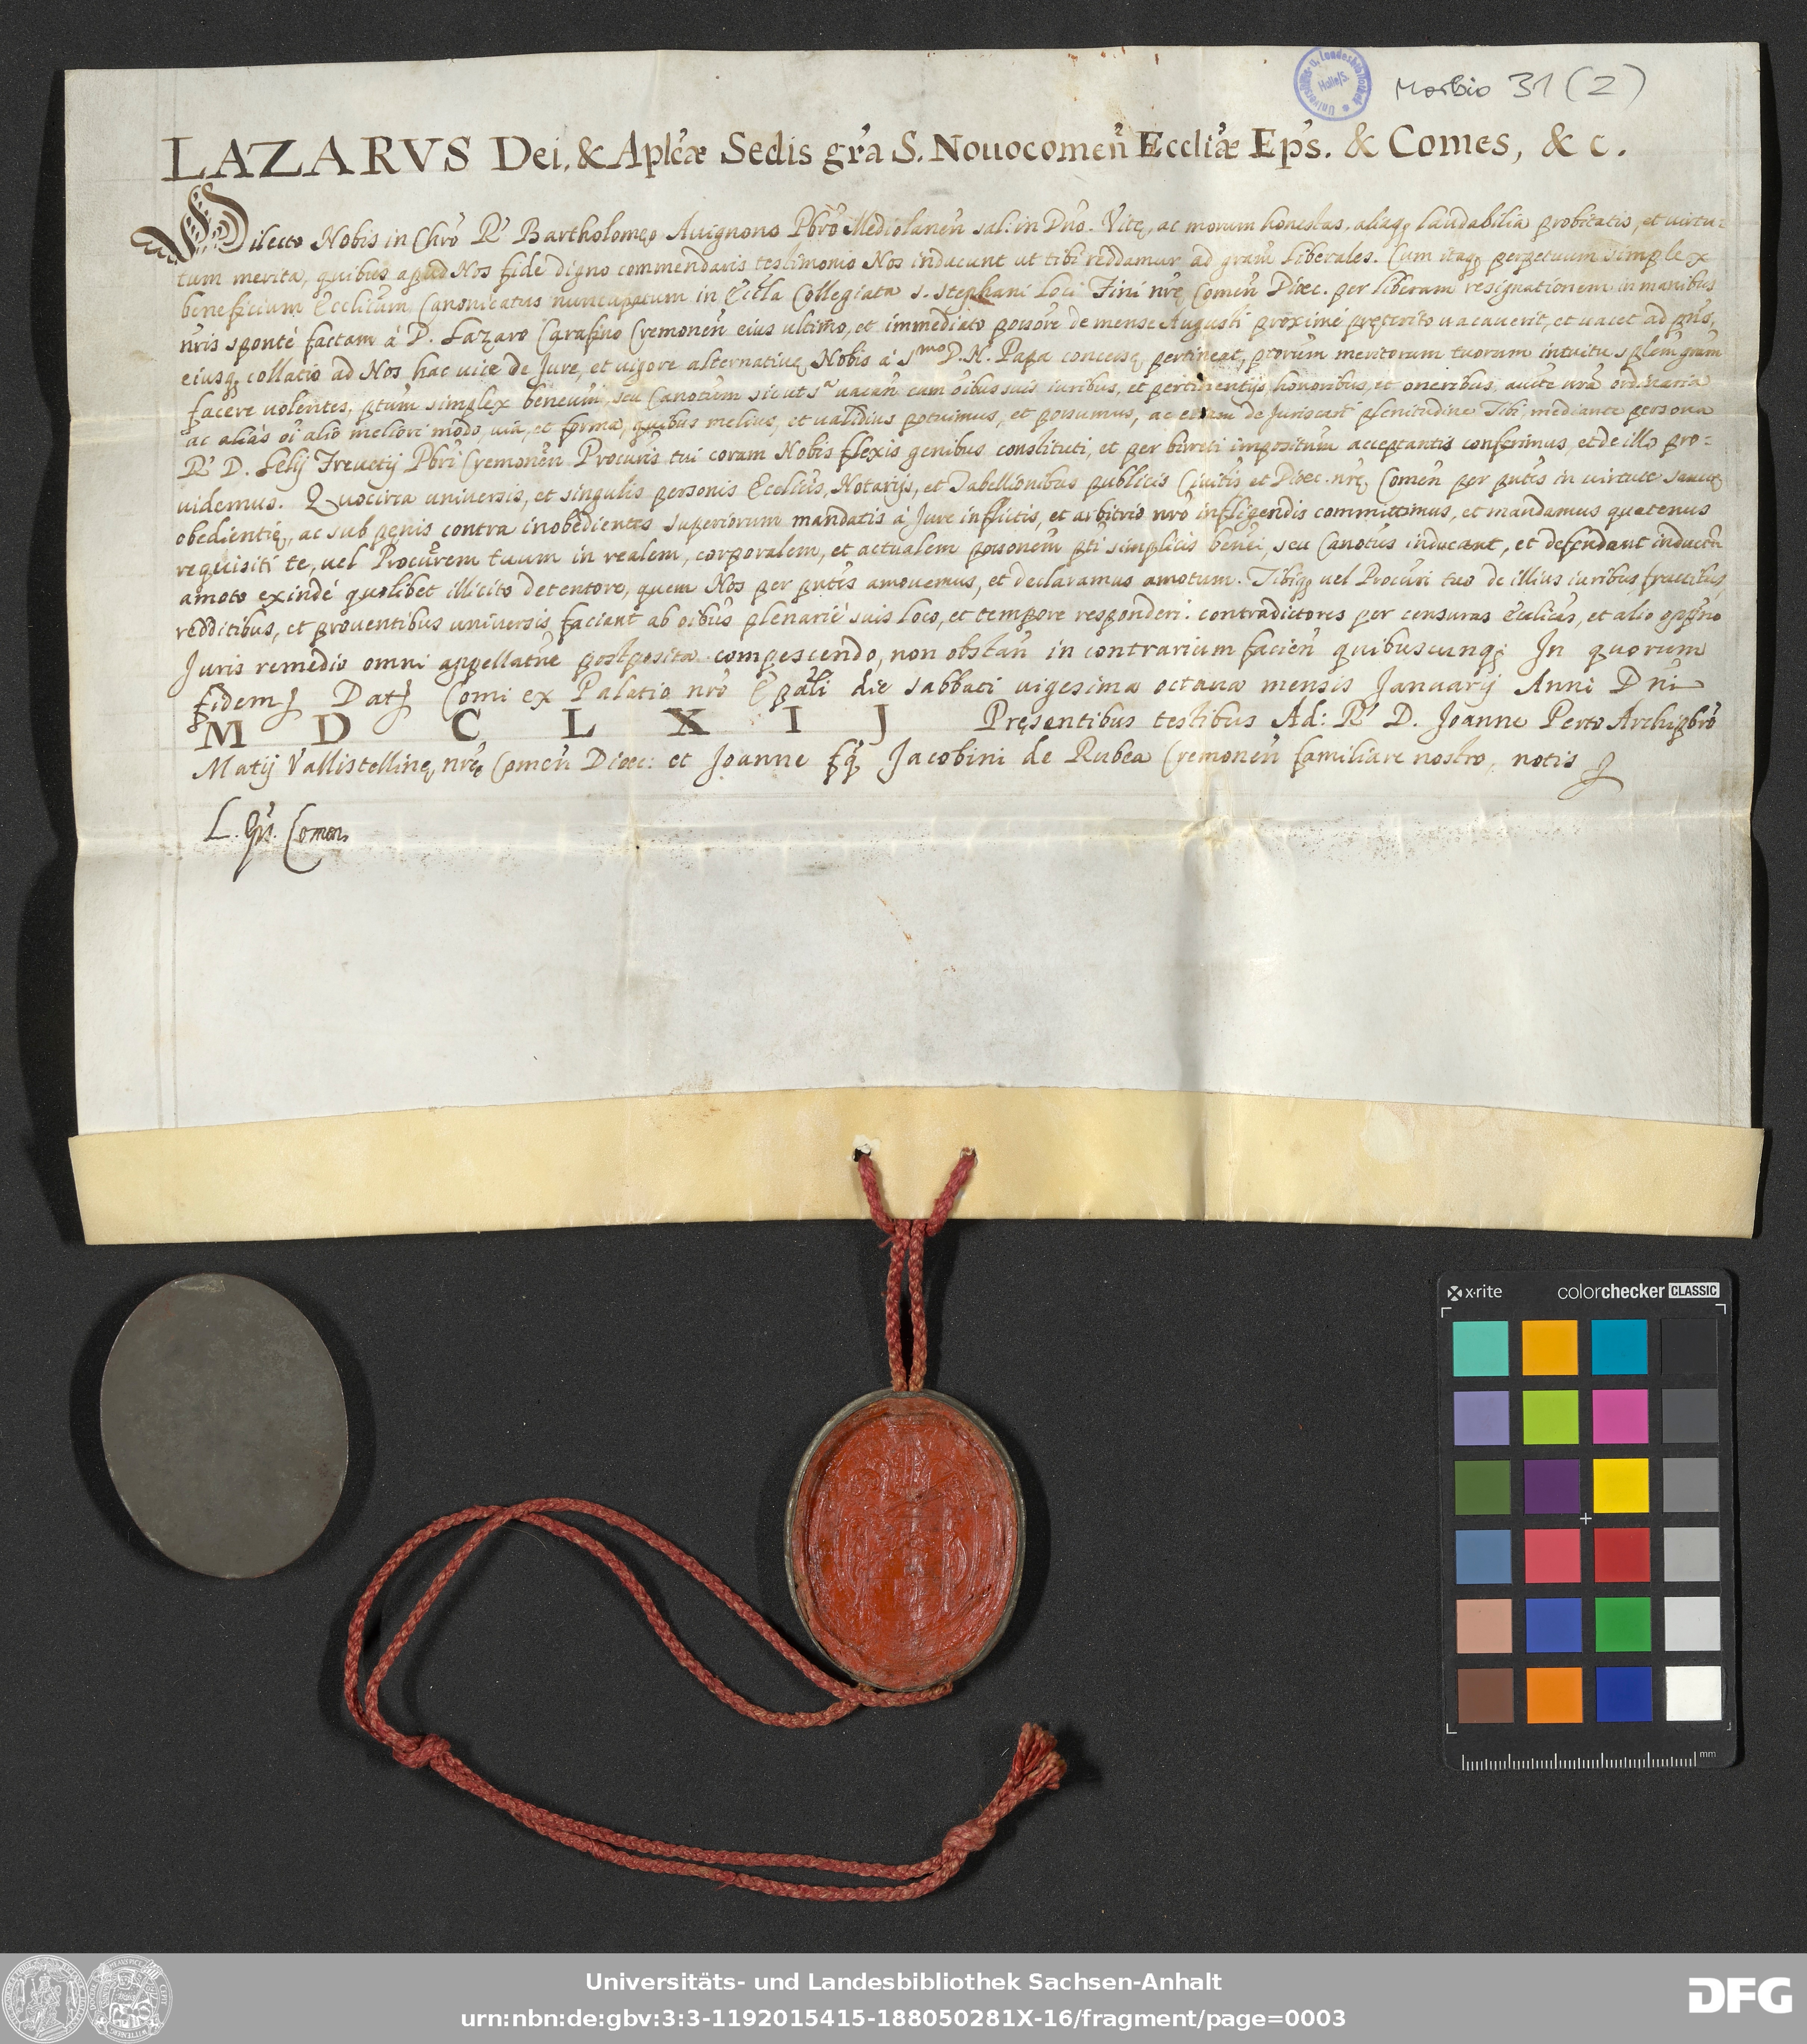 Morbio 31 (2)
Universitäts- u. Landesbibliothek Halle/S.
LAZARVS Dei, & Aplcæ Sedis gra S. Nouocomen Eccliæ Eps. & Comes, & c.
Dilecto Nobis in Chro R. Bartholomęo Auignono Pbro Mediolanen sal: in Dno. Vitę, ac morum honestas, aliaq; laudabilia probitatis, et uirtu-
tum merita, quibus apud Nos fide digno commendaris testimonio Nos inducunt ut tibi reddamur ad gram liberales. Cum itaq; perpetuum simplex
beneficium Ecclicum Canonicatus nuncupatum in Eccla Collegiata S. Stephani loci Fini nrę Comen Dioec. per liberam resignationem in manibus
nris sponté factam á D. Lazaro Carafino Cremonen eius ultimo, et immediato possore de mense Augusti proximé pręterito uacauerit, et uacet ad pns,
eiusq; collatio ad Nos hac uice de Jure, et uigore alternatiuę Nobis á Smo D. N. Papa concessę pertineat, ptorum meritorum tuorum intuitu splem gram
facere uolentes, ptum simplex beneum, seu Canotum sicut sr uacan cum oibus suis iuribus, et pertinentijs, honoribus, et oneribus, aucte nra ordinaria
ac aliás oi alio meliori modo, uia, et forma, quibus melius, et ualidius potuimus, et possumus, ac etiam de Juris cant plenitudine Tibi, mediante persona
R. D. Lelij Treuetij Pbri Cremonen Procuris tui coram Nobis flexis genibus constituti, et per birreti impositum acceptantis conferimus, et de illo pro-
uidemus. Quocirca uniuersis, et singulis personis Ecclicis, Notarijs, et Tabellionibus publicis Ciuitis et Dioec. nrę Comen per pntes in uirtute sanctę
obedientię, ac sub pęnis contra inobedientes superiorum mandatis á Jure inflictis, et arbitrio nro infligendis committimus, et mandamus quatenus
requisiti te, uel Procurem tuum in realem, corporalem, et actualem possonem pti simplicis benei, seu Canotus inducant, et defendant inductu
amoto exindé quolibet illicito detentore, quem Nos per pntes amouemus, et declaramus amotum. Tibiq; uel Procuri tuo de illius iuribus, fructibus,
redditibus, et prouentibus uniuersis faciant ab oibus plenarié suis loco, et tempore responderi. contradictores per censuras Ecclicas, et alio oppno
Juris remedio omni appellatne postposita compescendo, non obstan in contrarium facien quibuscunq; In quorum
fidem Dat Comi ex Palatio nro Epali die sabbati uigesima octaua mensis Januarij Anni Dni
M D C L X I J Pręsentibus testibus Ad: R. D. Joanne Perto Archipbro
Matij Vallistellinę nrę Comen Dioec: et Joanne fq Jacobini de Rubea Cremonen familiare nostro, notis
L. Eps. Comen.
x·rite colorchecker CLASSIC
mm
Universitäts- und Landesbibliothek Sachsen-Anhalt
urn:nbn:de:gbv:3:3-1192015415-188050281X-16/fragment/page=0003
DFG